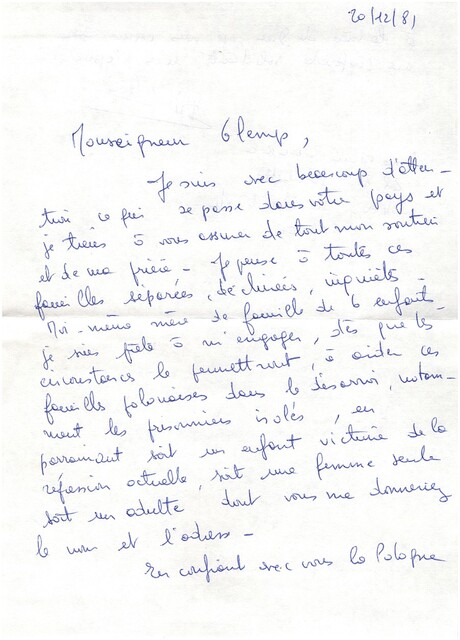 20/12/81
Monseigneur Glemp,
Je suis avec beaucoup d'atten-
tion ce qui se passe dans votre pays et
je tiens à vous assurer de tout mon soutien
et de ma prière - Je pense à toutes ces
familles séparées, déchirées, inquiètes -
Moi-même mère de famille de 6 enfants
je suis prête à m'engager, dès que les
circonstances le permettront, à aider ces
familles polonaises dans le désarroi, notam-
ment les prisonniers isolés, en
parrainant soit un enfant victime de la
répression actuelle, soit une femme seule
soit un adulte dont vous me donneriez
le nom et l'adresse -
En confiant avec vous la Pologne